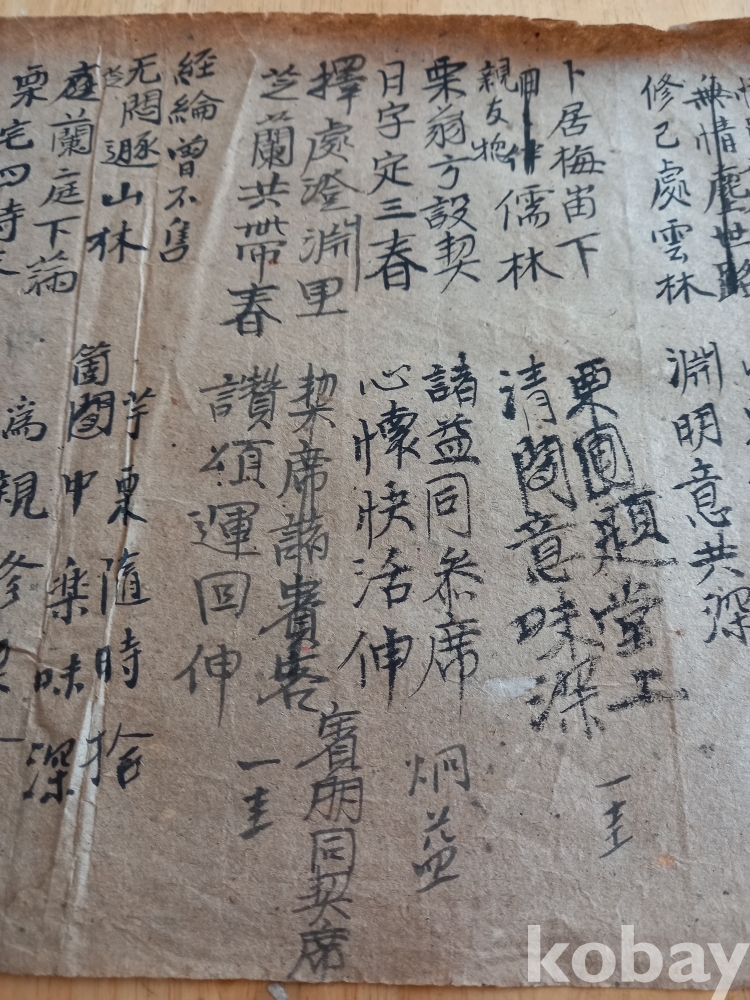 無情塵世路
修己處雲林
淵明意共深
卜居梅崮下
栗園題堂上
一圭
親友把
伴儒林
清閣意味深
栗翁方設契
諸益同參席
炯益
日字定三春
心懷快活伸
擇處澄淵里
契席諸賓客
賓朋同契席
芝蘭共帶春
讚頌運回伸
一圭
經綸曾不售
无悶遯山林
芋栗隨時拾
庭蘭庭下滿
箇中樂味深
栗宅四時
為親修契
kobay